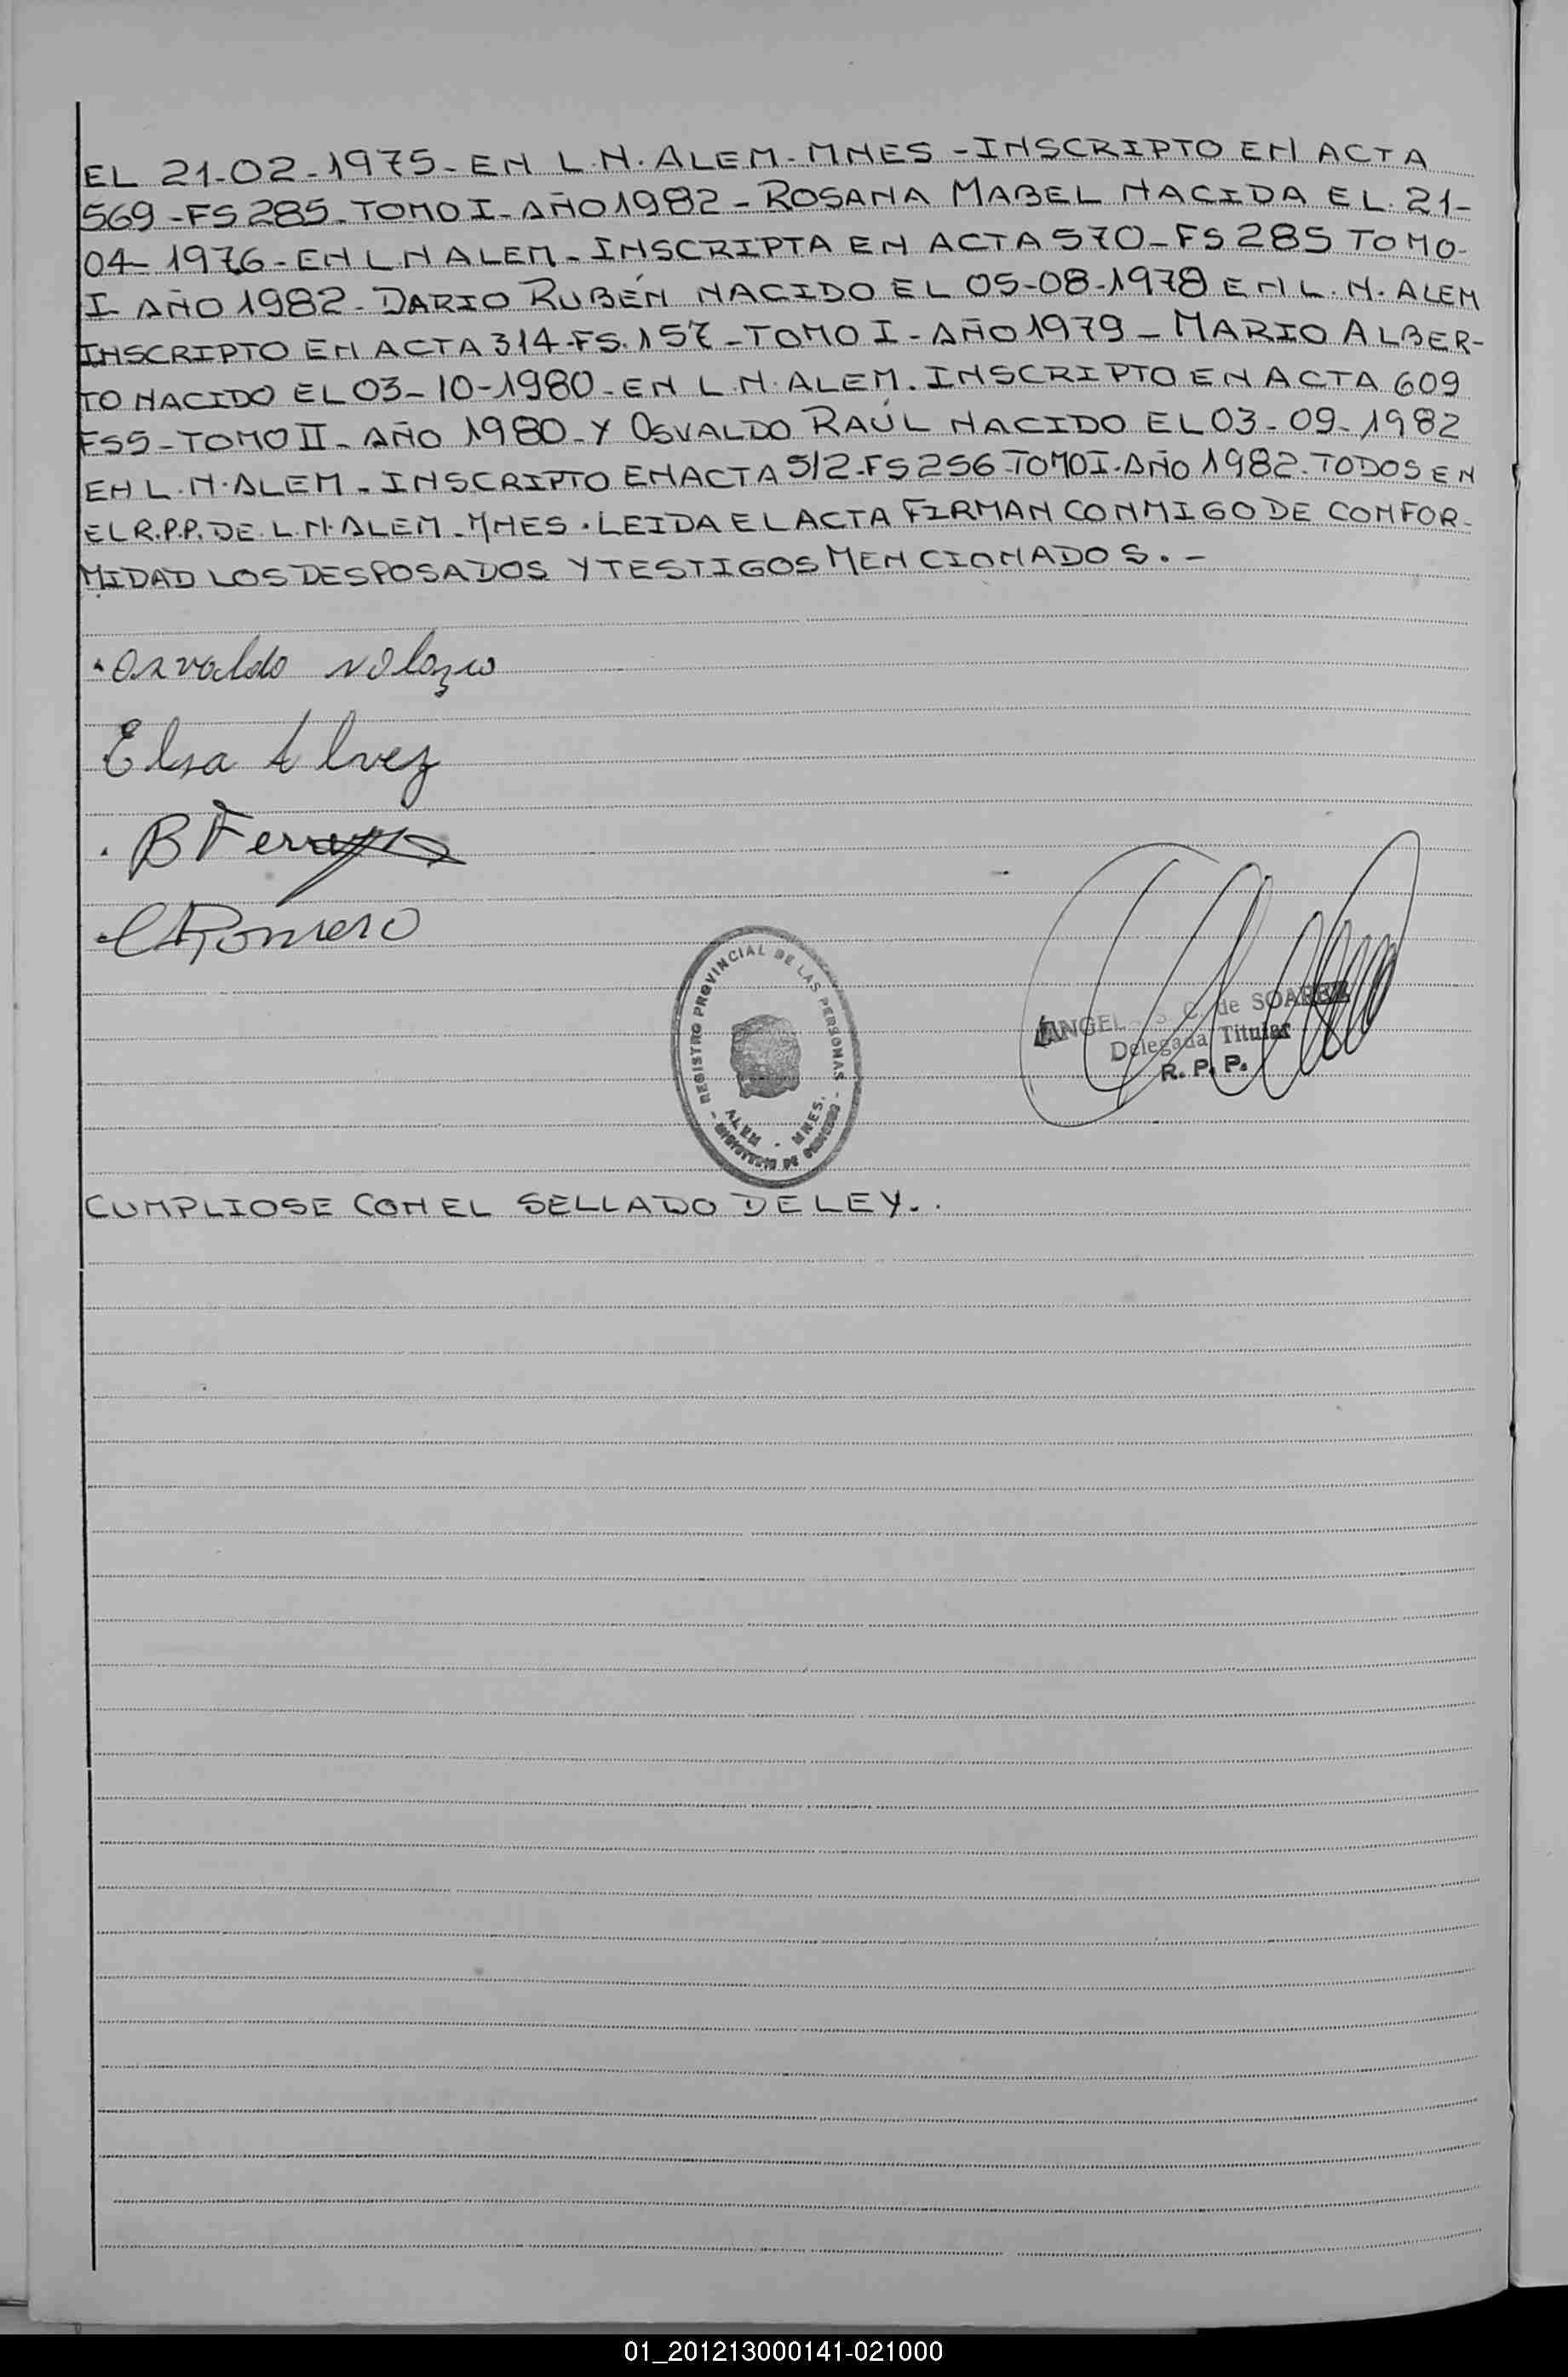 EL 21-02-1975- EN L.N. ALEM- MNES - INSCRIPTO EN ACTA
569-FS 285- TOMO I- AÑO 1982 - ROSANA MABEL NACIDA EL. 21-
04- 1976- EN L N ALEM- INSCRIPTA EN ACTA 570- FS 285 TOMO-
I- AÑO 1982- DARIO RUBÉN NACIDO EL 05-08-1978 EN L. N. ALEM
INSCRIPTO EN ACTA 314-FS. 157 -TOMO I - AÑO 1979 - MARIO ALBER-
TO NACIDO EL 03-10-1980- EN L.N. ALEM. INSCRIPTO EN ACTA 609
FS5- TOMO II- AÑO 1980- Y OSVALDO RAÚL NACIDO EL 03-09-1982
EN L.N. ALEM - INSCRIPTO EN ACTA 512-FS 256-TOMO I-AÑO 1982-TODOS EN
EL R.P.P. DE L.N. ALEM - MNES. LEIDA EL ACTA FIRMAN CONMIGO DE CONFOR-
MIDAD LOS DESPOSADOS Y TESTIGOS MENCIONADOS. -
Osvaldo
Elsa Alvez
B
Romero
REGISTRO PROVINCIAL DE LAS PERSONAS
ALEM - MNES.
C. de SOAREZ
Delegada Titular
R. P. P.
CUMPLIOSE CON EL SELLADO DE LEY. .
01_201213000141-021000